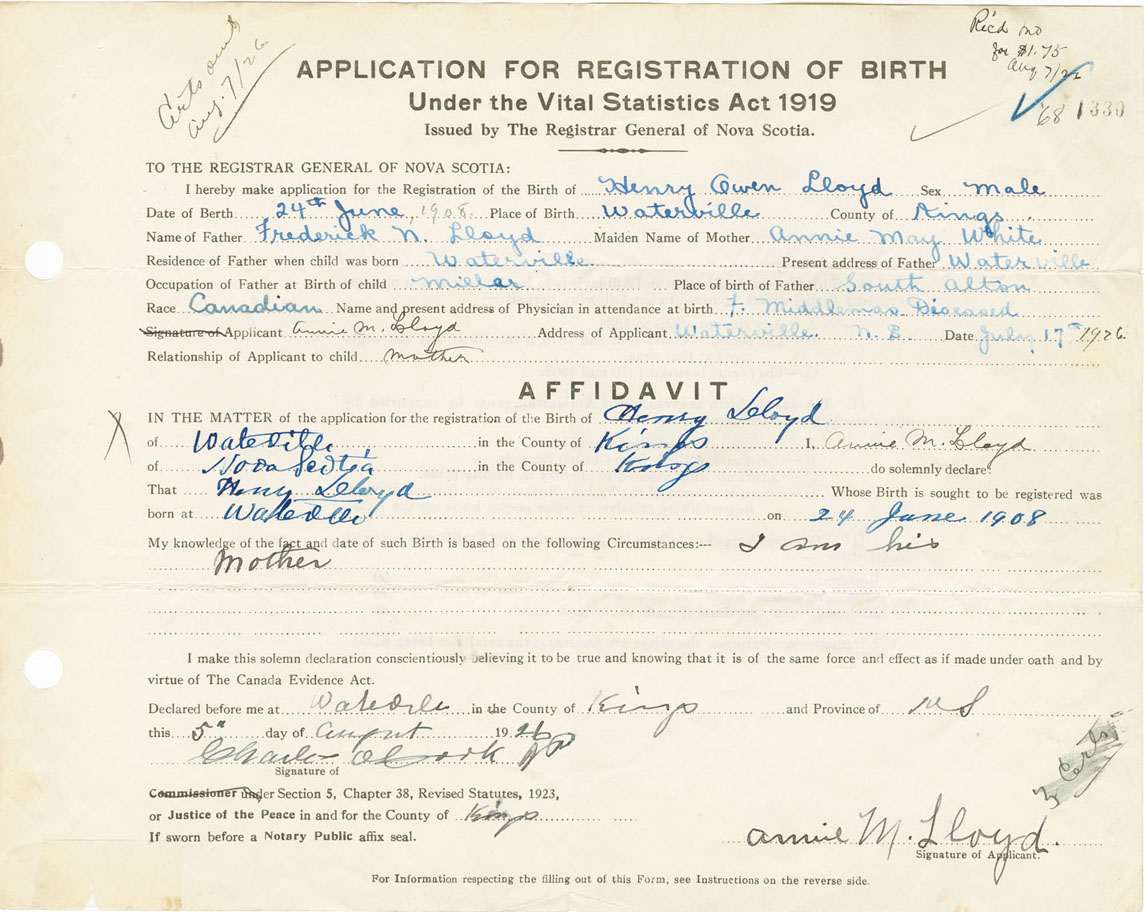 Certs out
Aug. 7/26
Rec'd mo
for $1.75
Aug 7/26
'68 1330
APPLICATION FOR REGISTRATION OF BIRTH
Under the Vital Statistics Act 1919
Issued by The Registrar General of Nova Scotia.
TO THE REGISTRAR GENERAL OF NOVA SCOTIA:
I hereby make application for the Registration of the Birth of Henry Owen Lloyd Sex male
Date of Berth 24th June, 1908. Place of Birth Waterville County of Kings.
Name of Father Frederick N. Lloyd Maiden Name of Mother Annie May White
Residence of Father when child was born Waterville Present address of Father Waterville
Occupation of Father at Birth of child Millar Place of birth of Father South Alton
Race Canadian Name and present address of Physician in attendance at birth F. Middlemas Deseased
Signature of Applicant Annie M. Lloyd Address of Applicant Waterville N. B Date July, 17th 1926
Relationship of Applicant to child mother
AFFIDAVIT
X
IN THE MATTER of the application for the registration of the Birth of Henry Lloyd
of Waterville in the County of Kings I, Annie M. Lloyd
of Nova Scotia in the County of Kings do solemnly declare:
That Henry Lloyd Whose Birth is sought to be registered was
born at Waterville on 24 June 1908
My knowledge of the fact and date of such Birth is based on the following Circumstances:--- I am his
Mother
I make this solemn declaration conscientiously believing it to be true and knowing that it is of the same force and effect as if made under oath and by
virtue of The Canada Evidence Act.
Declared before me at Waterville in the County of Kings and Province of N S
this 5" day of August 1926
Charles O Cook JP
Signature of
Commissioner under Section 5, Chapter 38, Revised Statutes, 1923,
or Justice of the Peace in and for the County of Kings
If sworn before a Notary Public affix seal.
Certs
Annie M. Lloyd.
Signature of Applicant.
For Information respecting the filling out of this Form, see Instructions on the reverse side.